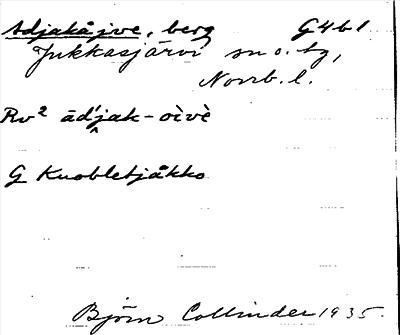 Adjakåjve, berg G4b1
Jukkasjärvi sn o. tg,
Norrb. l.
Rv² ād'jak-oìvè
G Kuobletjåkko
Björn Collinder 1935.